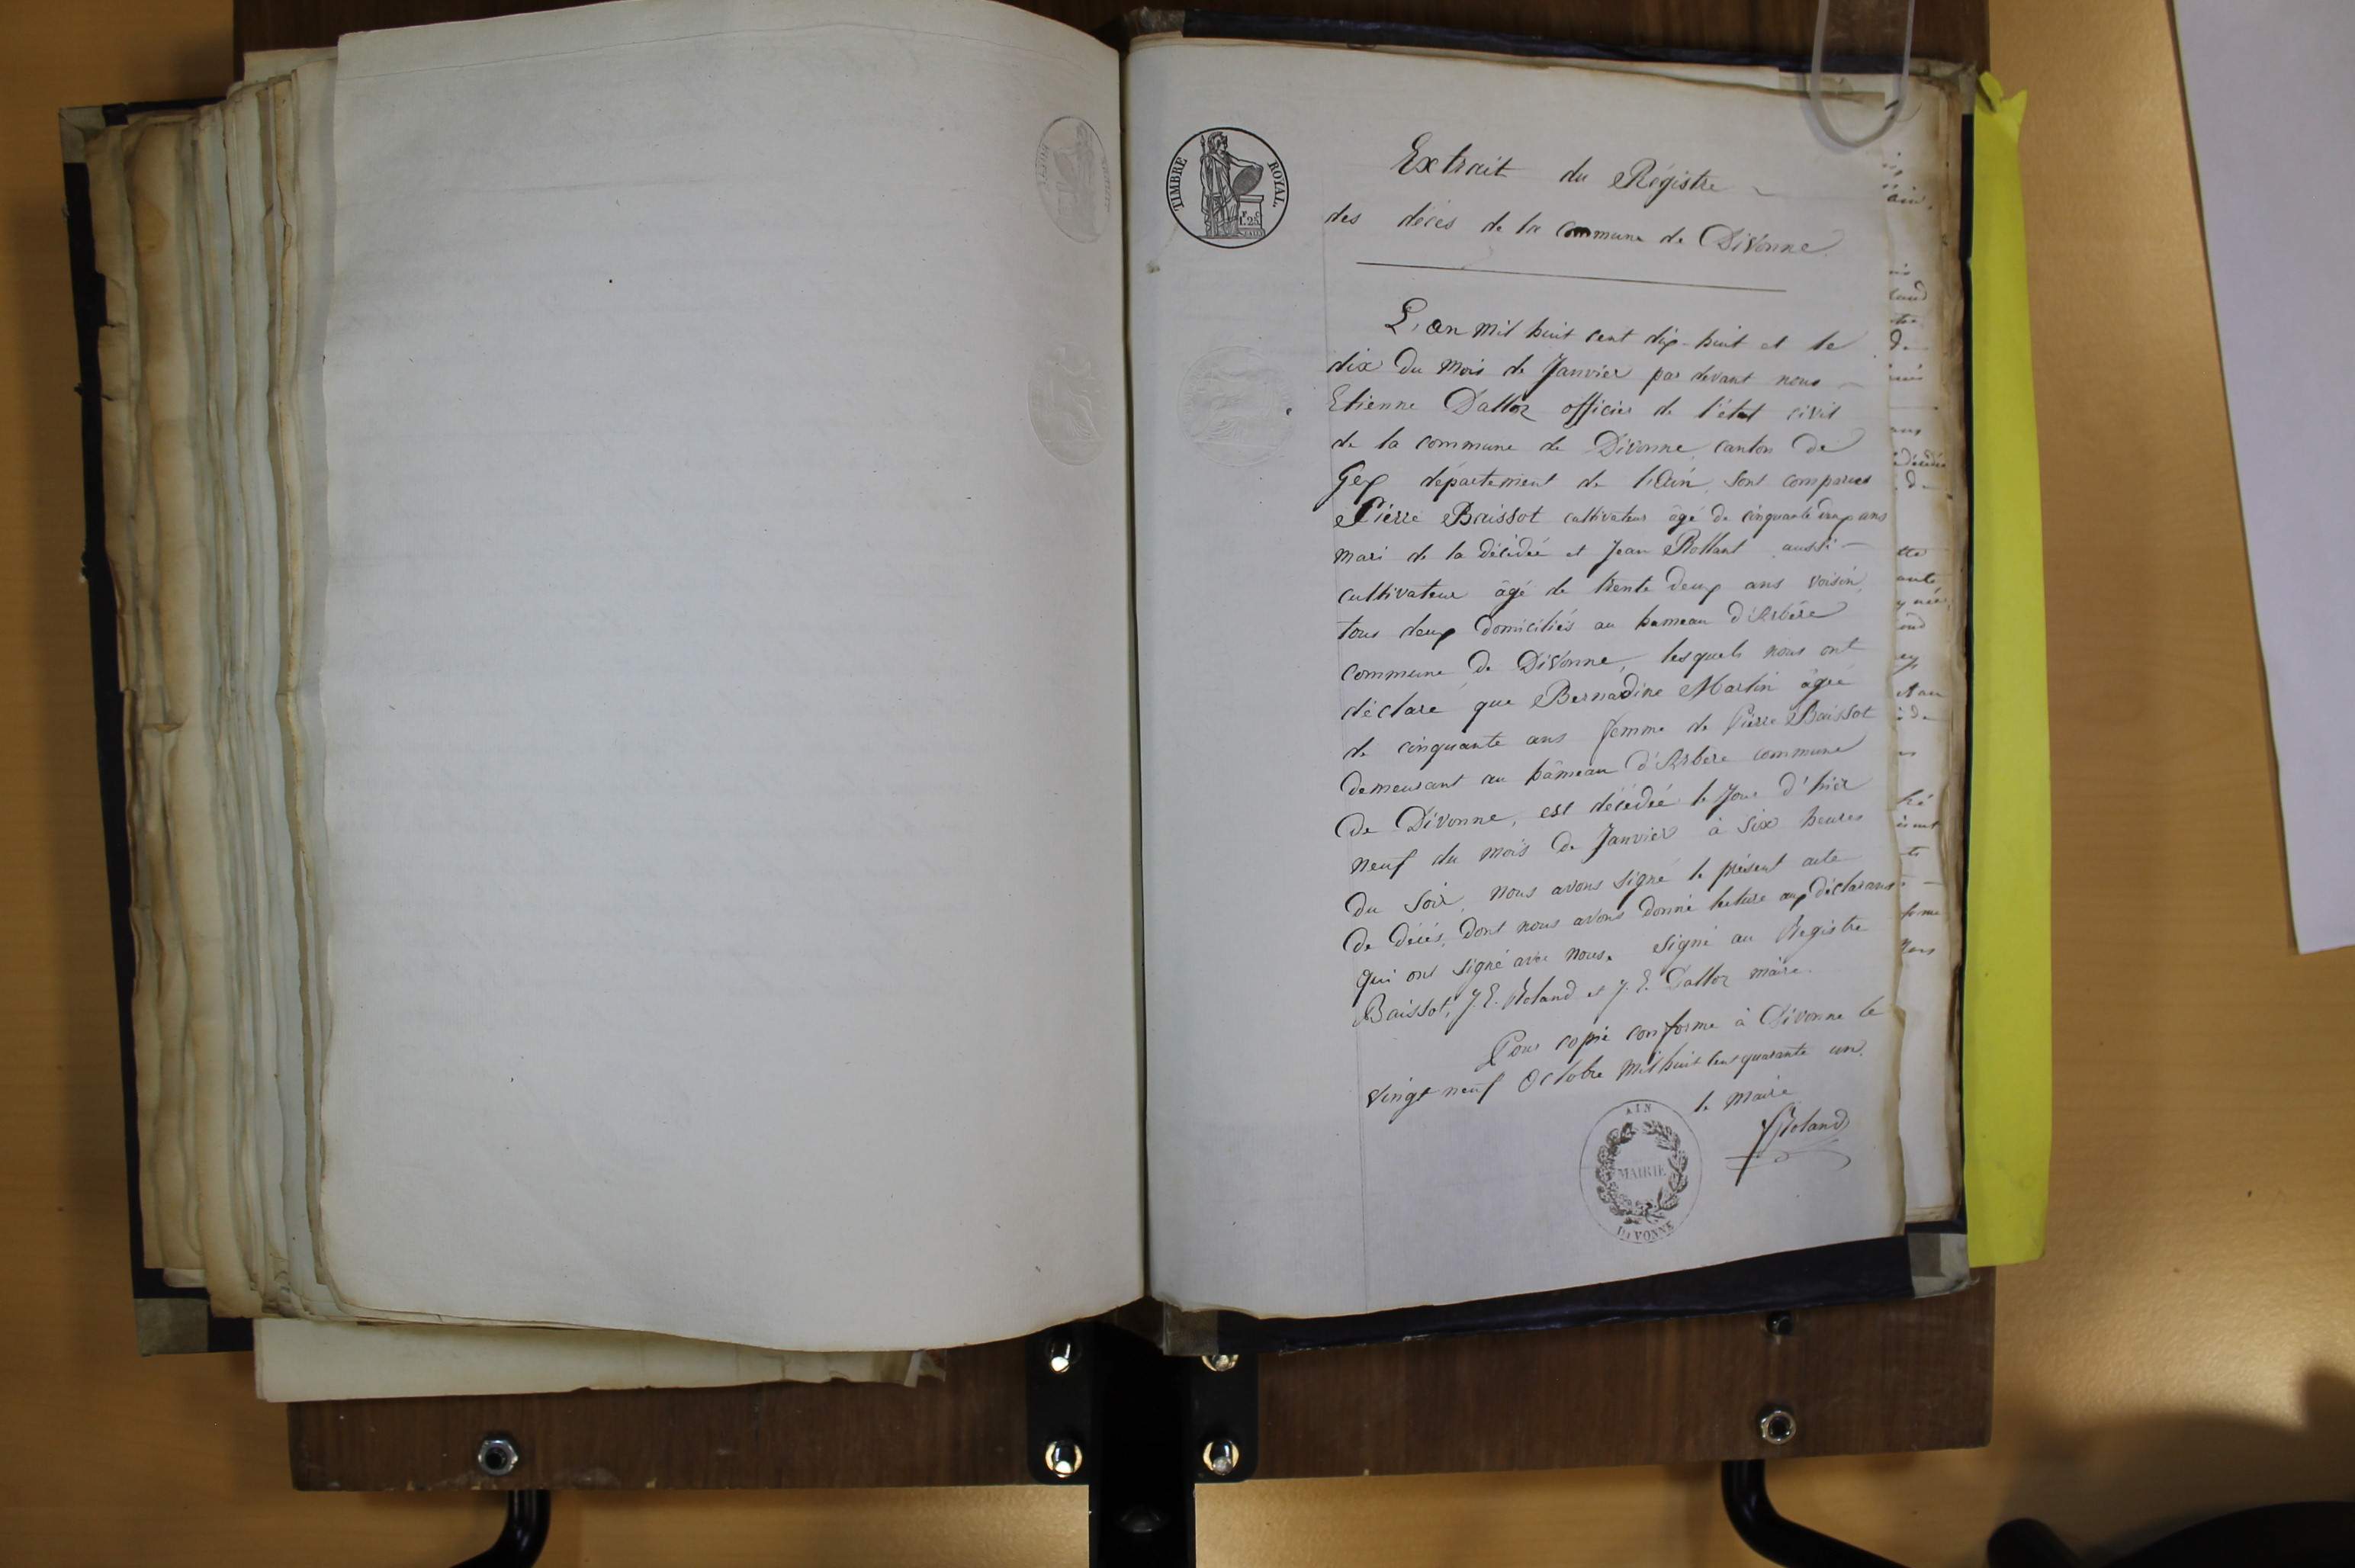 TIMBRE ROYAL
1f.25c
Extrait du Régistre
des décès de la commune de Divonne
L'an mil huit cent dix-huit et le
dix du mois de Janvier par devant nous
Etienne Dalloz officier de l'état civil
de la commune de Divonne, canton de
Gex département de l'Ain, sont comparus
Pierre Baissot cultivateur âgé de cinquante deux ans
mari de la décédée et Jean Rolland aussi
cultivateur âgé de trente deux ans voisin,
tous deux domiciliés au hameau d'Arbère
commune de Divonne, lesquels nous ont
déclaré que Bernadine Martin âgée
de cinquante ans femme de Pierre Baissot
demeurant au hâmeau d'Arbère commune
de Divonne, est décédée le jour d'hier
neuf du mois de Janvier à six heures
du soir, nous avons signé le présent acte
de décès, dont nous avons donné lecture aux déclarans
qui ont signé avec nous. Signé au Registre
Baissot, J. E. Roland et J. E. Dalloz maire.
Pour copie conforme à Divonne le
vingt neuf Octobre mil huit cent quarante un.
le maire
Roland
AIN
MAIRIE
DIVONNE